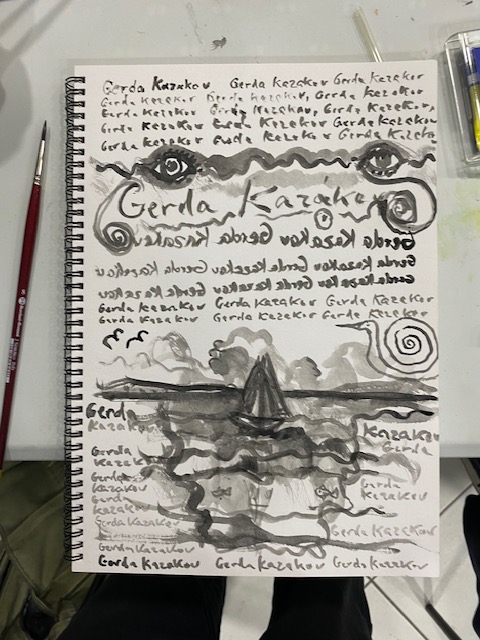 Gerda Kazakov Gerda Kazakov Gerda Kazakov
Gerda Kazakov Gerda Kazakov, Gerda Kazakov
Gerda Kazakov Gerda Kazakov, Gerda Kazakov,
Gerda Kazakov Gerda Kazakov Gerda Kazakov
Gerda Kazakov Gerda Kazakov Gerda Kazakov
Gerda Kazakov
Gerda Kazakov Gerda Kazakov
Gerda Kazakov Gerda Kazakov Gerda Kazakov
Gerda Kazakov Gerda Kazakov Gerda Kazakov
Gerda Kazakov Gerda Kazakov Gerda Kazakov
Gerda Kazakov Gerda Kazakov Gerda Kazakov
Gerda
Kazakov
Kazakov
Gerda
Gerda
Kazak
Gerda
Kazakov
Gerda
Kazakov
Gerda
Kazakov
Gerda Kazakov
Gerda Kazakov
Gerda Kazakov
Gerda Kazakov Gerda Kazakov Gerda Kazakov